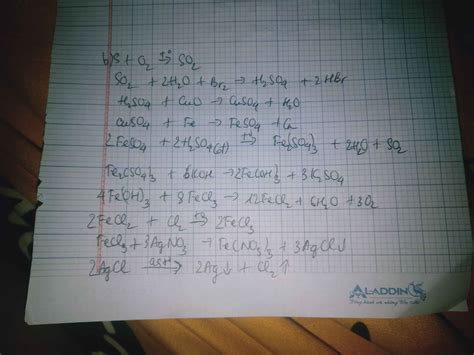 b) S + O₂ →(t°) SO₂
SO₂ + 2H₂O + Br₂ → H₂SO₄ + 2HBr
H₂SO₄ + CuO → CuSO₄ + H₂O
CuSO₄ + Fe → FeSO₄ + Cu
2FeSO₄ + 2H₂SO₄(đ) →(t°) Fe₂(SO₄)₃ + 2H₂O + SO₂
Fe₂(SO₄)₃ + 6KOH → 2Fe(OH)₃ + 3K₂SO₄
4Fe(OH)₃ + 8FeCl₃ → 12FeCl₂ + 6H₂O + 3O₂
2FeCl₂ + Cl₂ →(t°) 2FeCl₃
FeCl₃ + 3AgNO₃ → Fe(NO₃)₃ + 3AgCl↓
2AgCl →(as) 2Ag↓ + Cl₂↑
ALADDIN